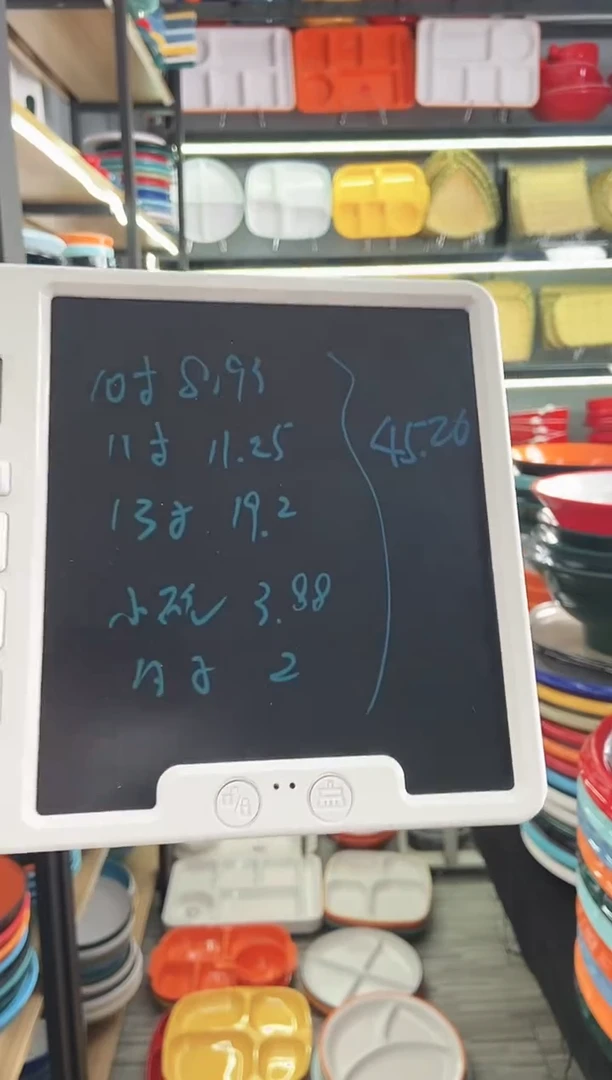 10寸 8.93
11寸 11.25
13寸 19.2
小碗 3.88
勺子 2
45.26